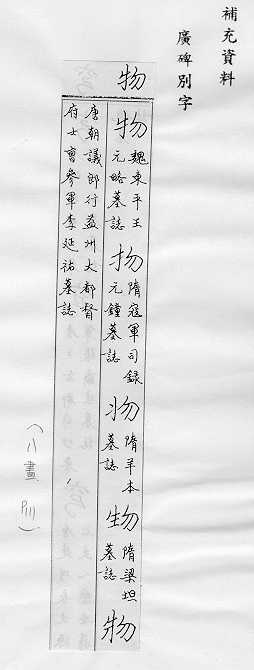 補充資料
廣碑別字
物
物 魏東平王元略墓誌 物 隋寇軍司錄元鐘墓誌 物 隋羊本墓誌 物 隋梁坦墓誌 物
唐朝議郎行益州大都督府士曹參軍李延祐墓誌
(八畫